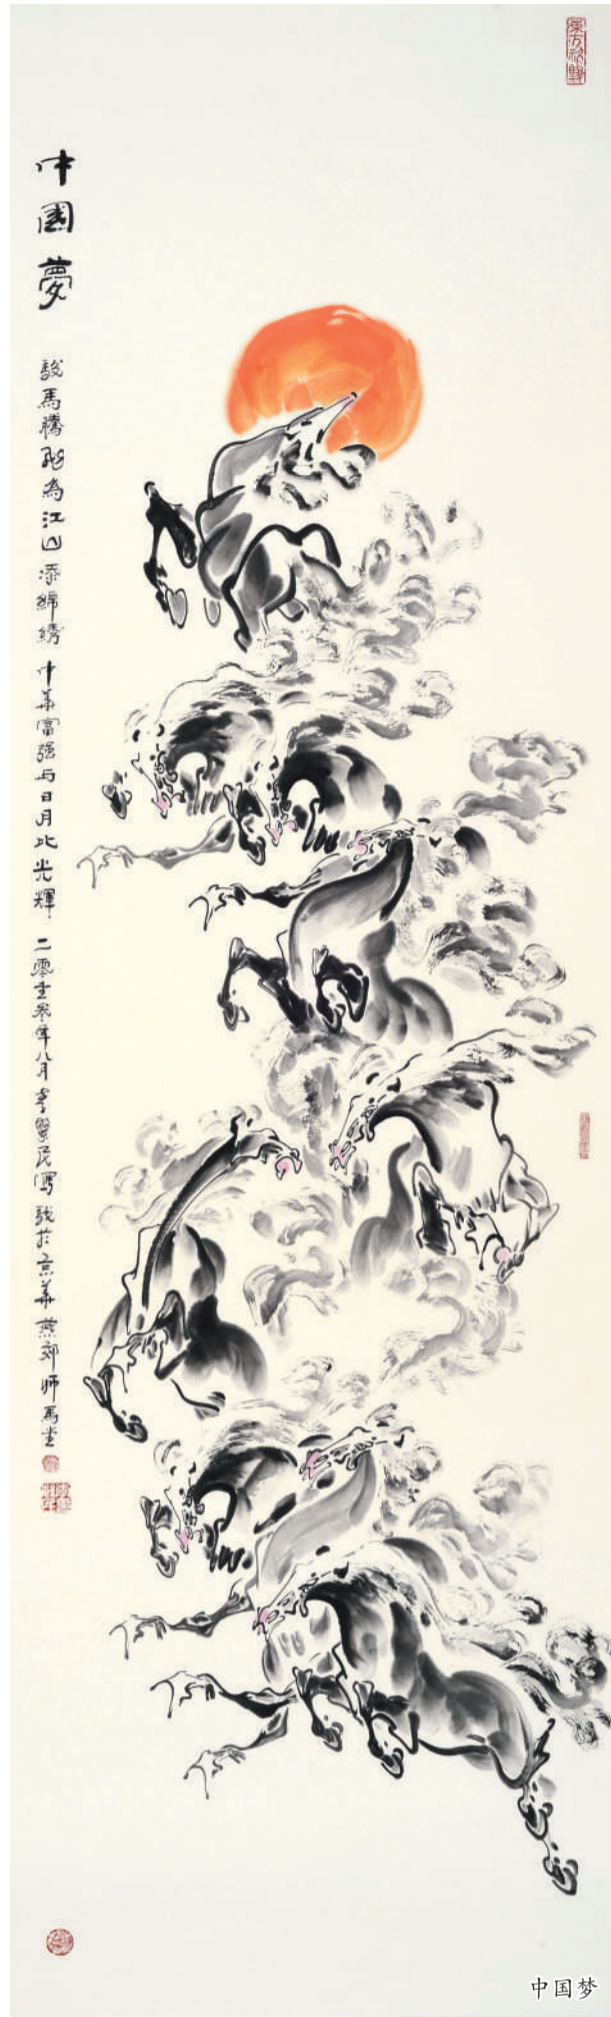 中國夢
駿馬騰飛為江山添錦繡 中華富强与日月比光輝 二零壹叁年八月李繁民寫
於京華燕郊師馬堂
中国梦